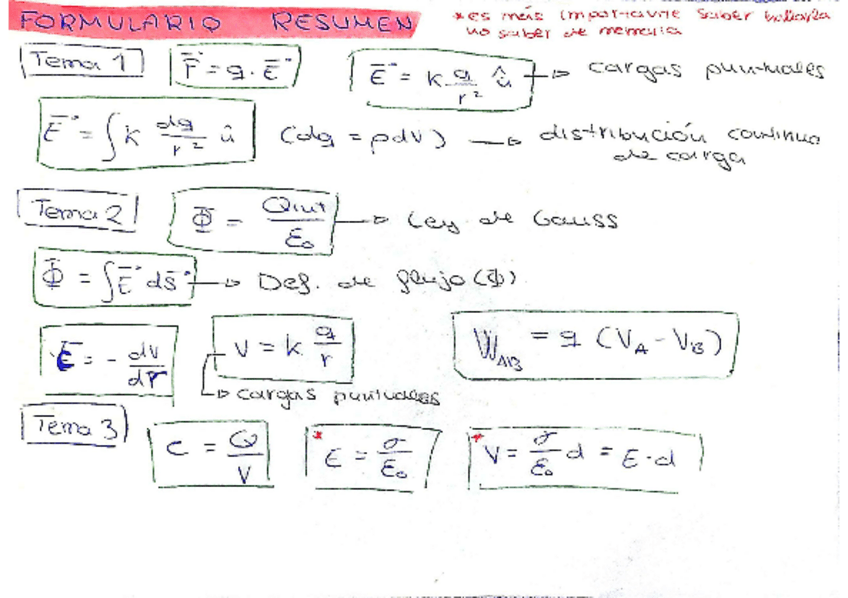 FORMULARIO RESUMEN
*es más importante saber hallarla
no saber de memoria
Tema 1
F⃗ = q · E⃗
E⃗ = k q/r² û → cargas puntuales
E⃗ = ∫ k dq/r² û (dq = ρdV) → distribución continua
de carga
Tema 2
Φ = Qint/ε₀ → Ley de Gauss
Φ = ∫E⃗ dS⃗ → Def. de flujo (Φ)
E = - dV/dr
V = k q/r
W_AB = q (V_A - V_B)
→ cargas puntuales
Tema 3
C = Q/V
* E = σ/ε₀
* V = σ/ε₀ d = E·d